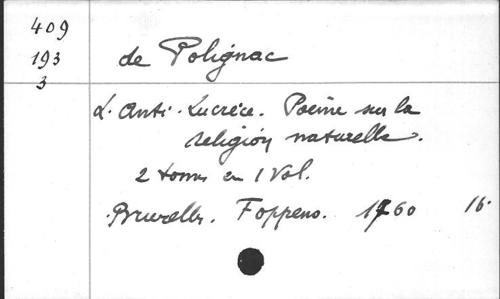 409
193
3
de Polignac
L'Anti-Lucrèce. Poème sur la
religion naturelle.
2 tomes en 1 Vol.
Bruxelles. Foppens. 1760 16°